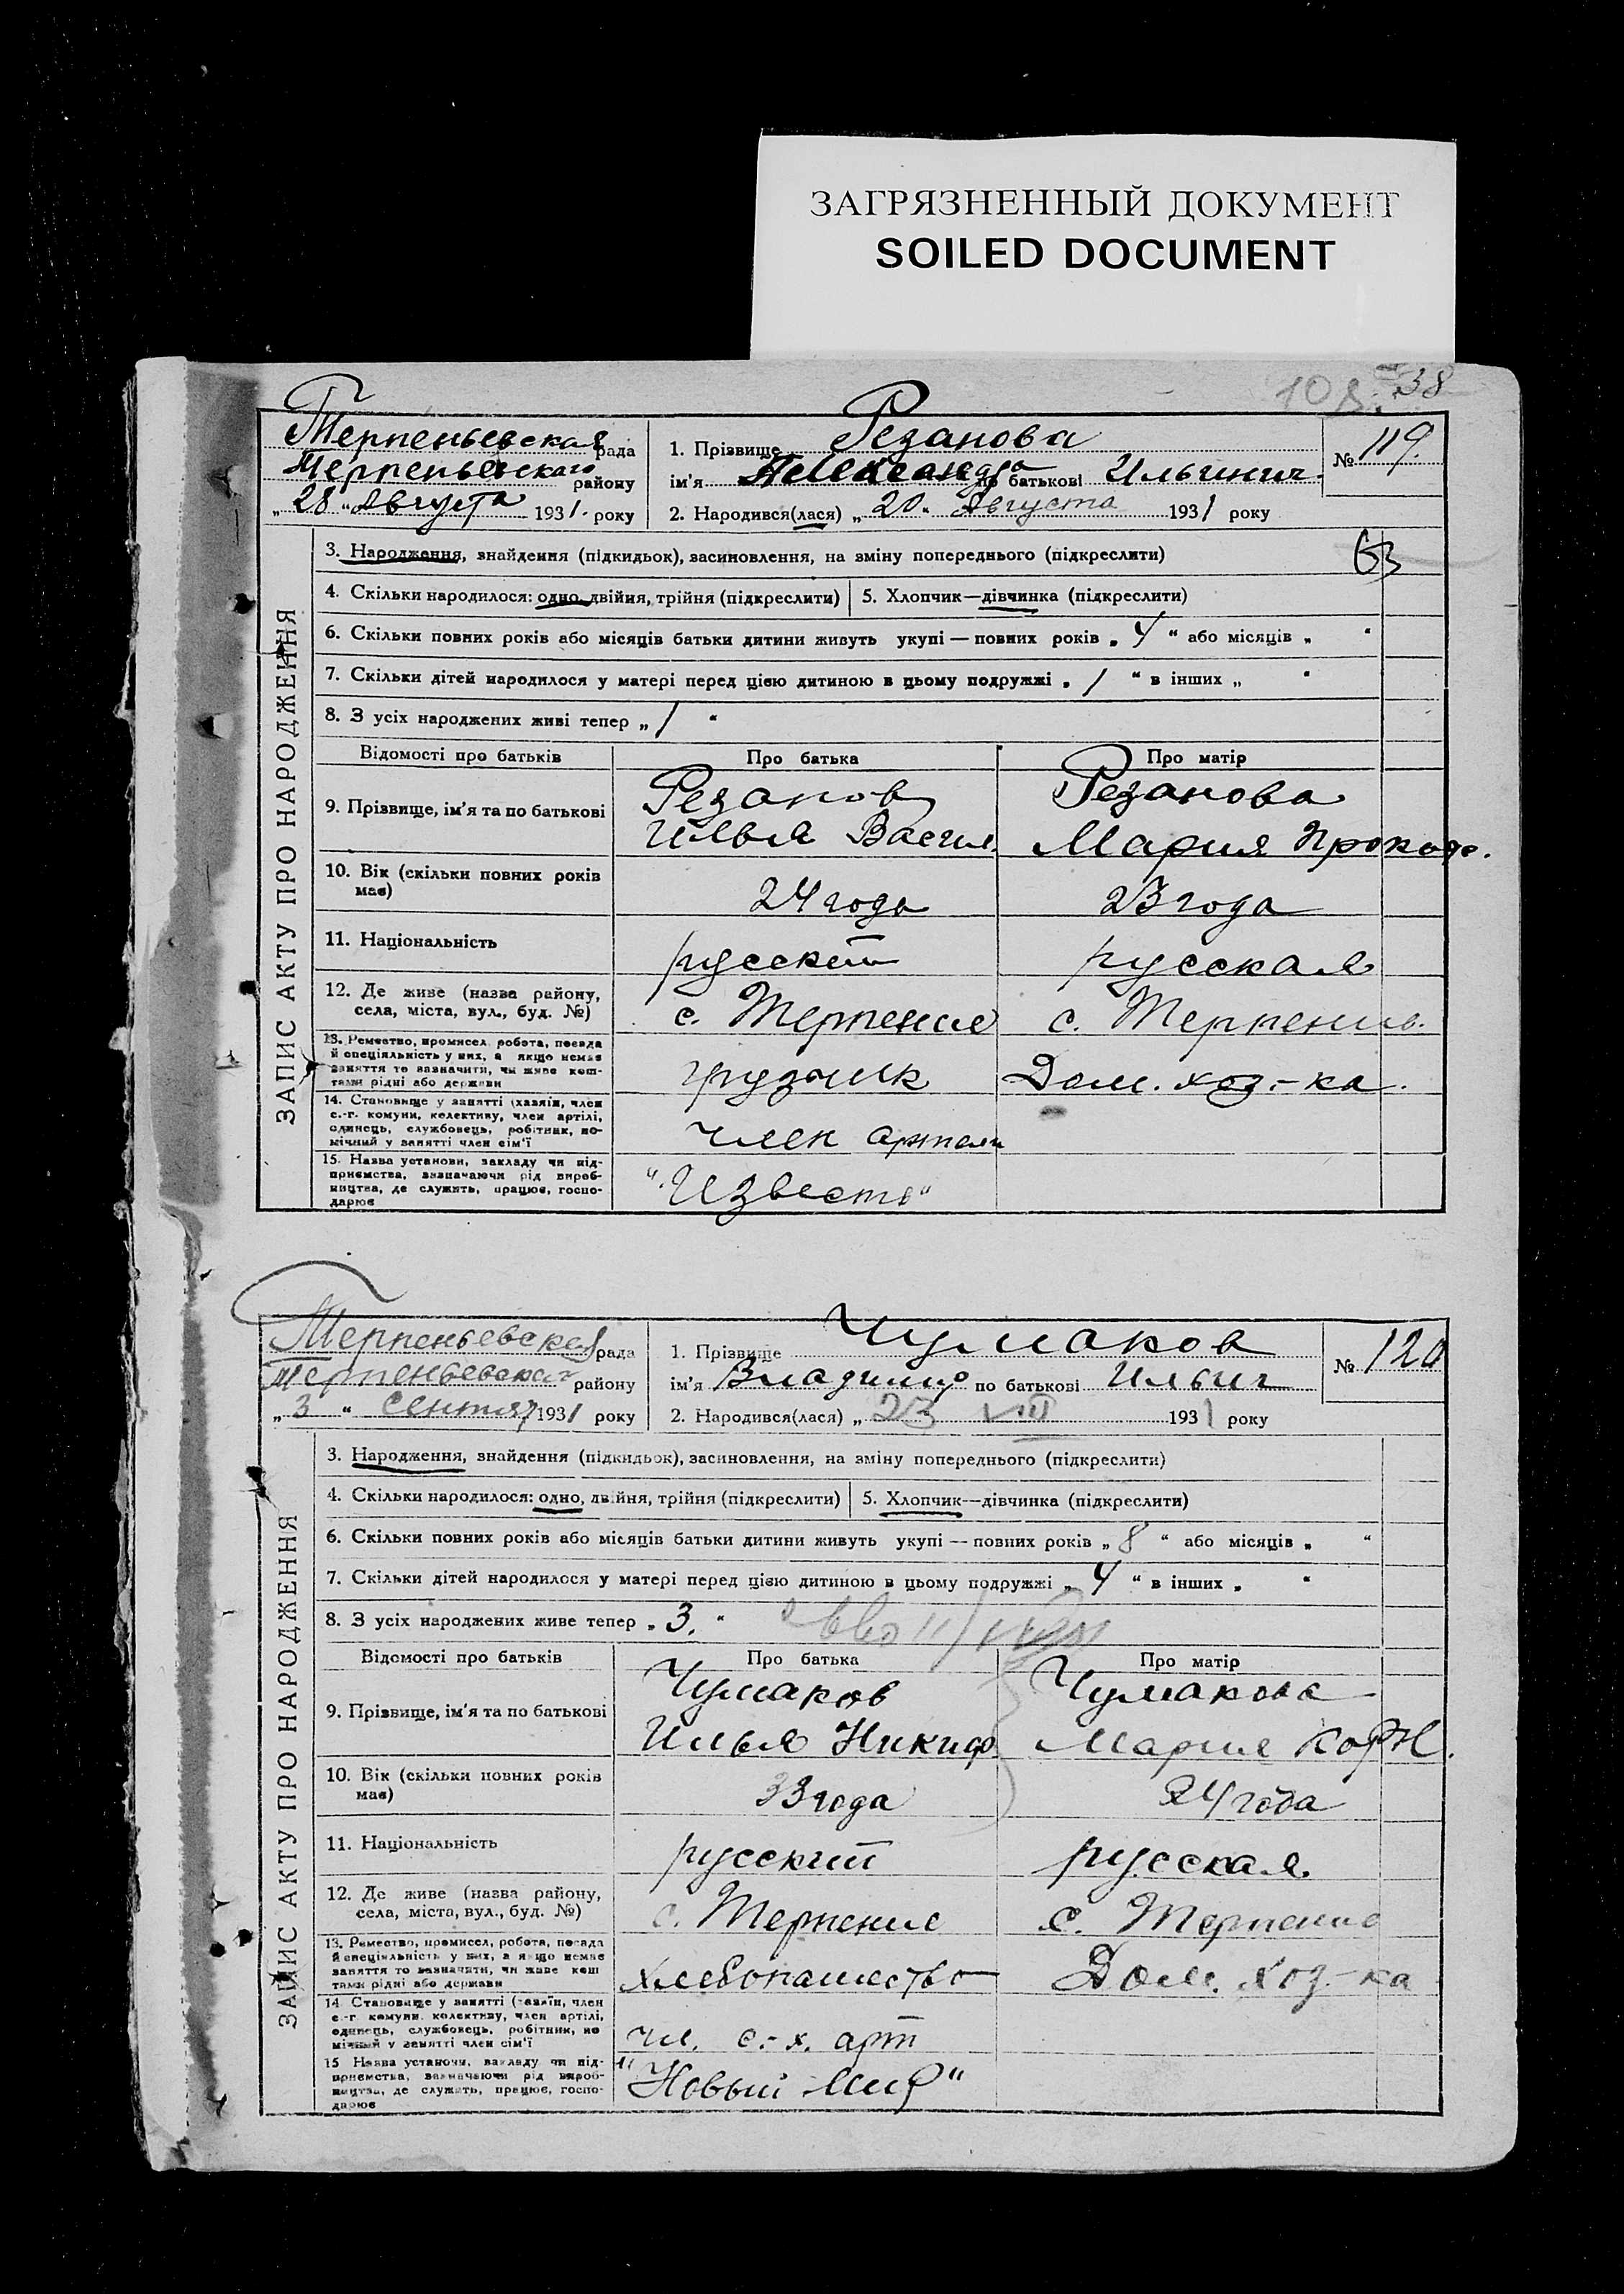 ЗАГРЯЗНЕННЫЙ ДОКУМЕНТ
SOILED DOCUMENT
38
Терпеньевская рада
Терпеньевскаго району
„28“ Августа 1931. року
1. Прізвище Резанова
ім'я Александра по батькові Ильинич.
2. Народився(лася) „20“ Августа 1931 року
№ 119.
ЗАПИС АКТУ ПРО НАРОДЖЕННЯ
3. Народження, знайдення (підкидьок), засиновлення, на зміну попереднього (підкреслити)
4. Скільки народилося: одно, двійня, трійня (підкреслити)
5. Хлопчик—дівчинка (підкреслити)
6. Скільки повних років або місяців батьки дитини живуть укупі — повних років „4“ або місяців „ “
7. Скільки дітей народилося у матері перед цією дитиною в цьому подружжі „1“ в інших „ “
8. З усіх народжених живі тепер „1“
Відомості про батьків
Про батька
Про матір
9. Прізвище, ім'я та по батькові
Резанов
Илья Васил.
Резанова
Мария Прокоф.
10. Вік (скільки повних років має)
24 года
23 года
11. Національність
русский
русская
12. Де живе (назва району,
села, міста, вул., буд. №)
с. Терпение
с. Терпение.
13. Ремество, промисел, робота, посада
й спеціяльність у них, а якщо немає
заняття то зазначити, чи живе кош-
тами рідні або держави
грузчик
Дом. хоз-ка.
14. Становище у занятті (хазяїн, член
с.-г. комуни, колективу, член артілі,
одинець, службовець, робітник, по-
мічний у занятті член сім'ї
член артели
15. Назва установи, закладу чи під-
приємства, зазначаючи рід вироб-
ництва, де служить, працює, госпо-
дарює
Терпеньевская рада
Терпеньевская району
„3“ Сентяр 1931 року
1. Прізвище Чумаков
ім'я Владимир по батькові Ильич
2. Народився(лася) „23 VIII 1931 року
№ 120
ЗАПИС АКТУ ПРО НАРОДЖЕННЯ
3. Народження, знайдення (підкидьок), засиновлення, на зміну попереднього (підкреслити)
4. Скільки народилося: одно, двійня, трійня (підкреслити)
5. Хлопчик—дівчинка (підкреслити)
6. Скільки повних років або місяців батьки дитини живуть укупі — повних років „8“ або місяців „ “
7. Скільки дітей народилося у матері перед цією дитиною в цьому подружжі „4“ в інших „ “
8. З усіх народжених живе тепер „3.“
Відомості про батьків
Про батька
Про матір
9. Прізвище, ім'я та по батькові
Чумаков
Илья Никиф
Чумакова
Мария Корн.
10. Вік (скільки повних років
має)
33 года
24 года
11. Національність
русский
русская
12. Де живе (назва району,
села, міста, вул., буд. №)
с. Терпение
с. Терпение
13. Ремество, промисел, робота, посада
й спеціяльність у них, а якщо немає
заняття то зазначити, чи живе кош
тами рідні або держави
хлебопашество
Дом. хоз-ка
14 Становище у занятті (хазяїн, член
с.-г. комуни, колективу, член артілі,
одинець, службовець, робітник, по
мічний у занятті член сім'ї
чл. с.-х. арт
15 Назва установи, закладу чи під-
приємства, зазначаючи рід вироб-
ництва, де служить, працює, госпо-
дарює
"Новый Мир"